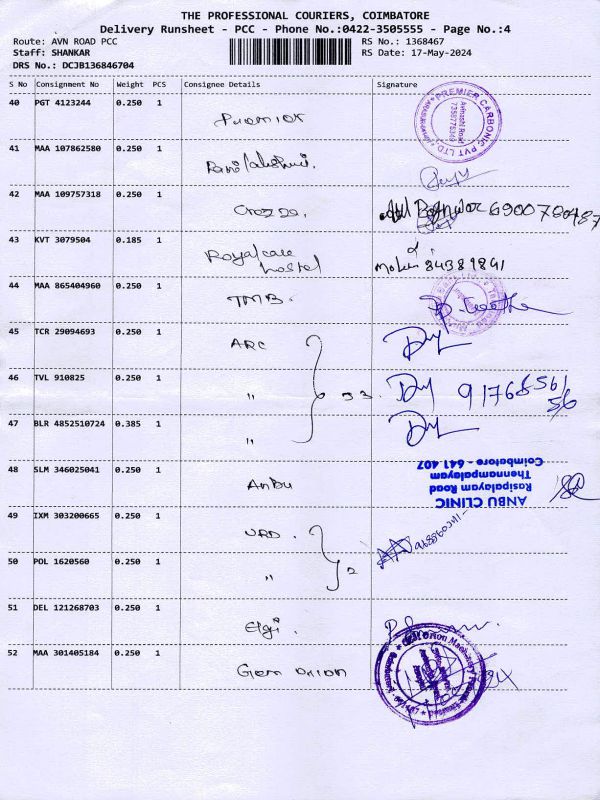 THE PROFESSIONAL COURIERS, COIMBATORE
Delivery Runsheet - PCC - Phone No.:0422-3505555 - Page No.:4
Route: AVN ROAD PCC RS No.: 1368467
Staff: SHANKAR RS Date: 17-May-2024
DRS No.: DCJB136846704
S No Consignment No Weight PCS Consignee Details Signature
40 PGT 4123244 0.250 1 Premier
PREMIER CARBONIC PVT LTD.
Avinashi Road
41 MAA 107862580 0.250 1
42 MAA 109757318 0.250 1
43 KVT 3079504 0.185 1 Royalcare
hostel
44 MAA 865404960 0.250 1 TMB.
45 TCR 29094693 0.250 1 ARC
46 TVL 910825 0.250 1 "
47 BLR 4852510724 0.385 1 "
48 SLM 346025041 0.250 1 Anbu
ANBU CLINIC
Rasipalayam Road
Thennampalayam
Coimbatore - 641 407
49 IXM 303200665 0.250 1 URD.
50 POL 1620560 0.250 1 " 2
51 DEL 121268703 0.250 1 Elgi.
52 MAA 301405184 0.250 1 Gem orion